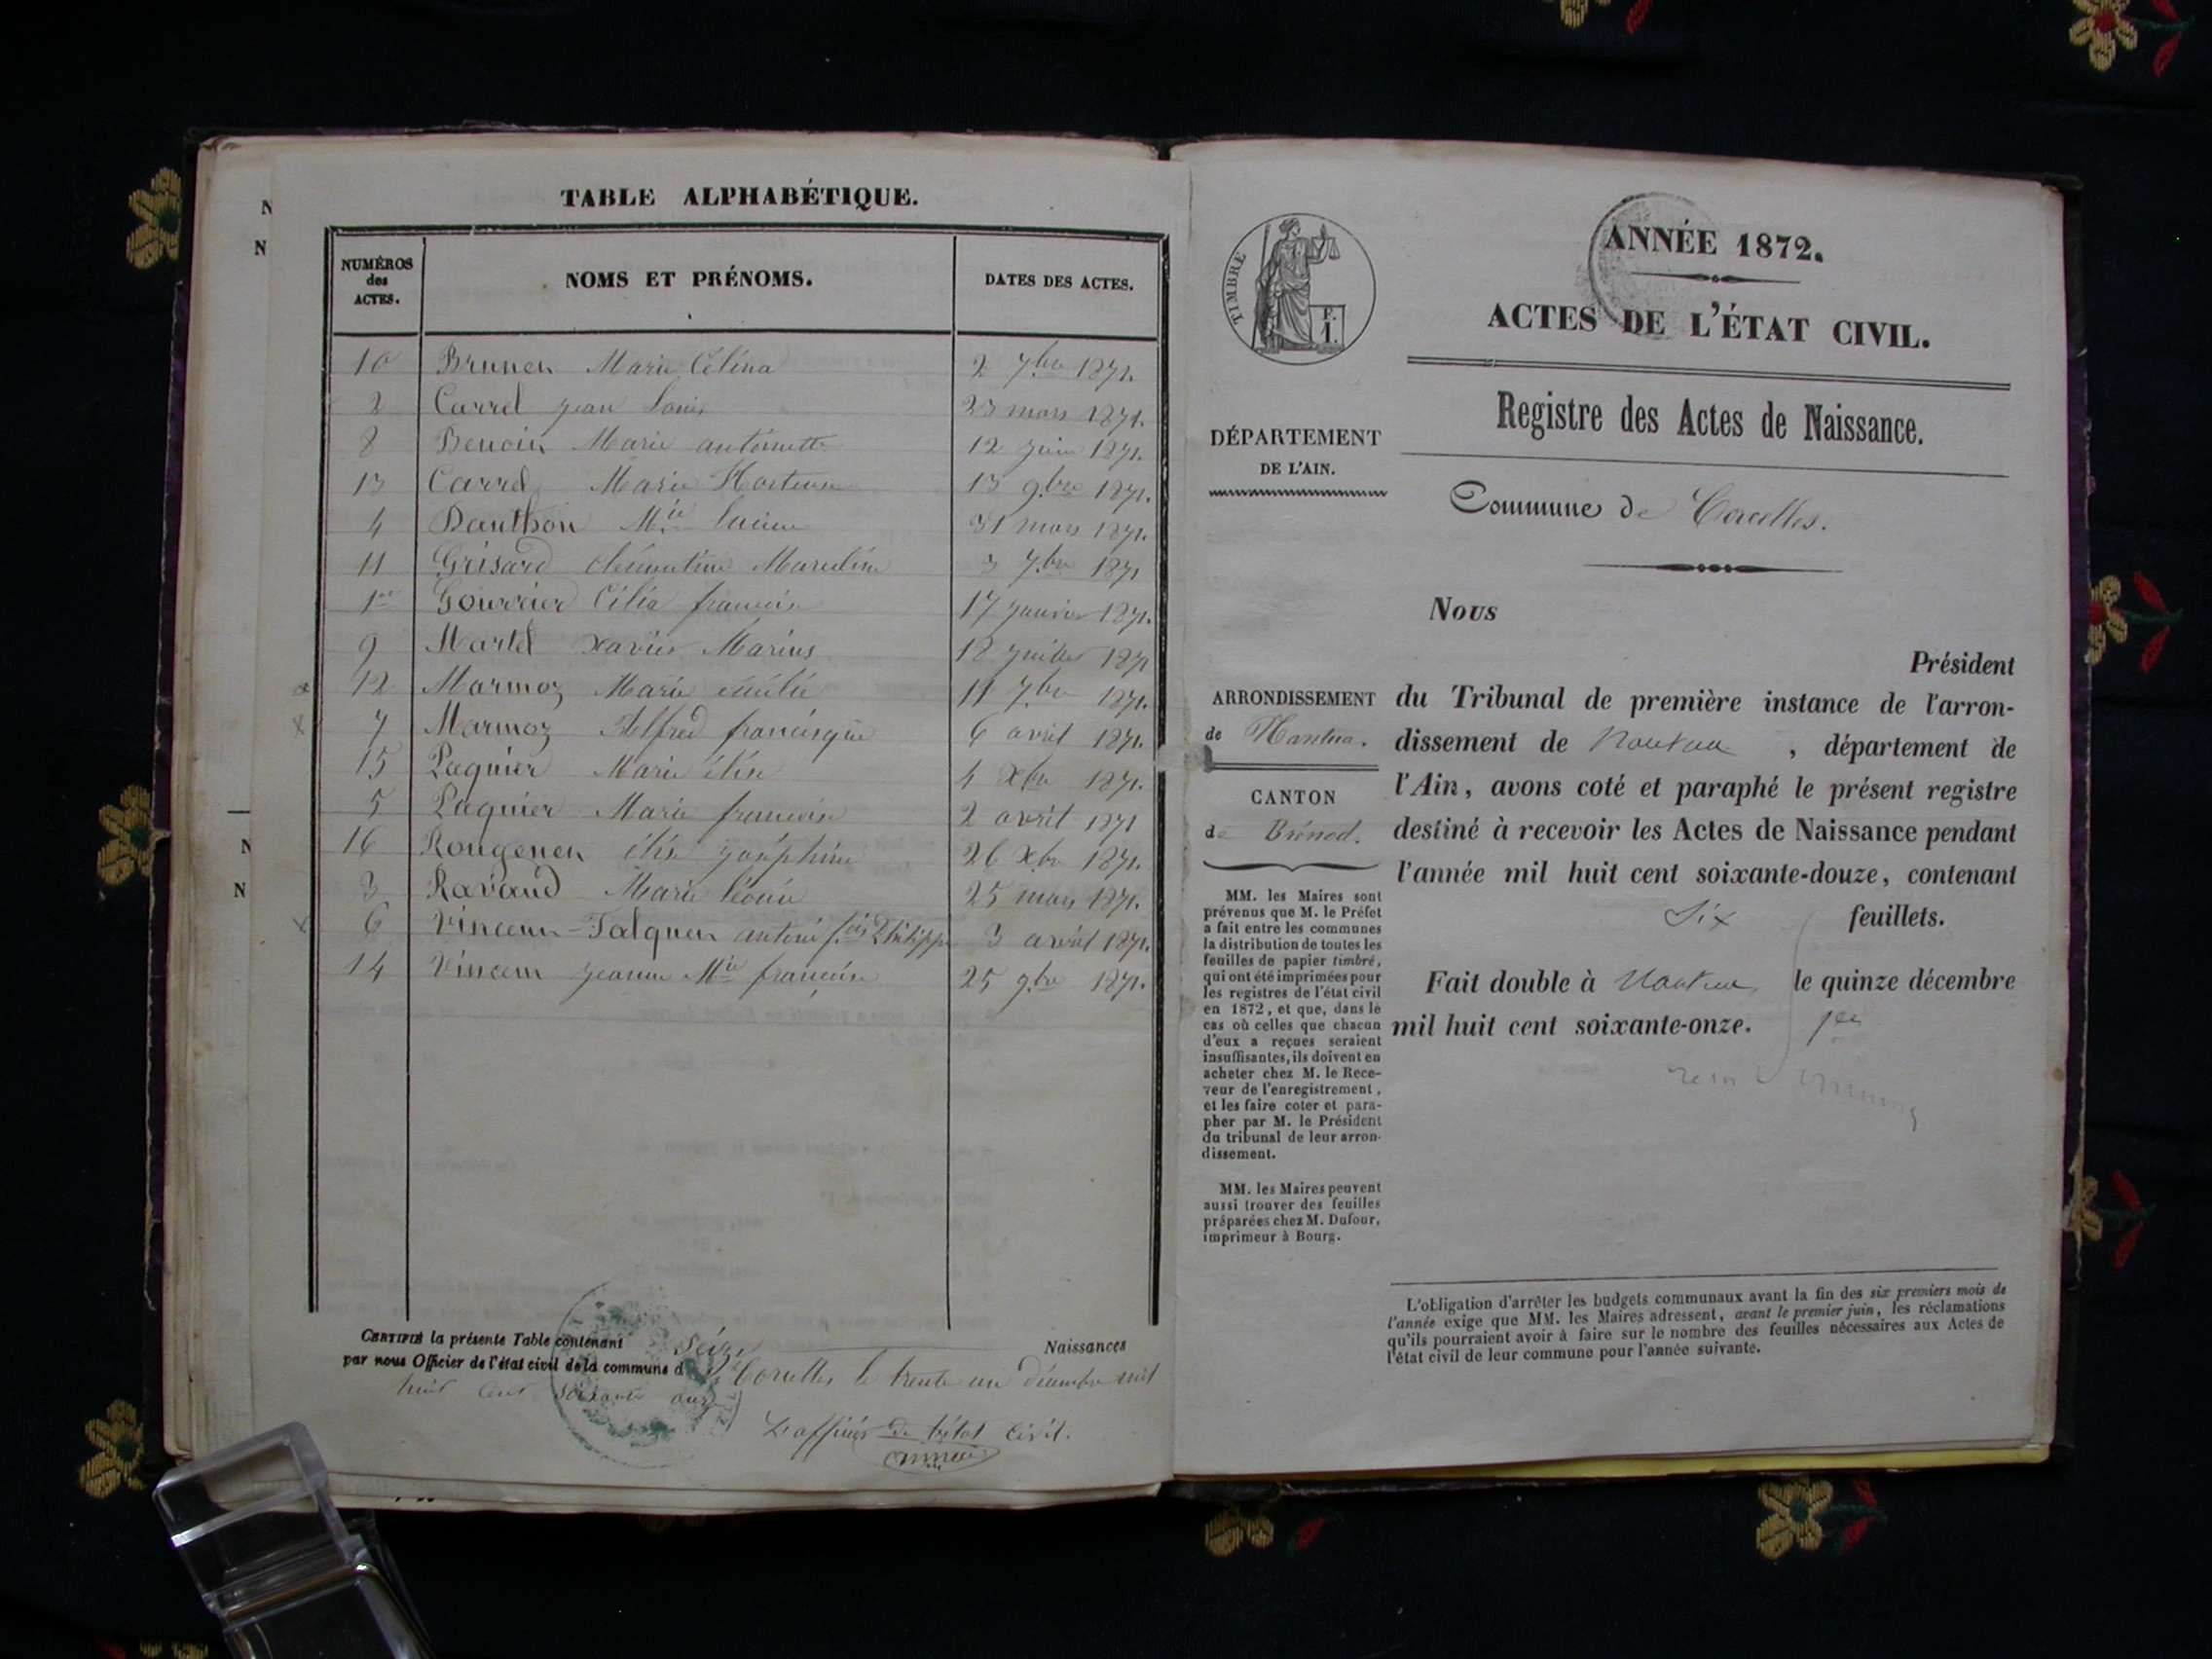 TABLE ALPHABÉTIQUE.
NUMÉROS des ACTES.
NOMS ET PRÉNOMS.
DATES DES ACTES.
10 Brunet Marie Célina 2 7bre 1871.
2 Carrel Jean Louis 23 mars 1871.
8 Benoit Marie antoinette 12 juin 1871.
13 Carrel Marie Hortense 13 9bre 1871.
4 Danthon Mie Lucien 31 mars 1871.
11 Grisard clémentine Marceline 3 7bre 1871
1er Gourrier Célia françoise 17 janvier 1871.
9 Martel xavier Marius 18 juillet 1871
12 Marmoz Marie émélie 11 7bre 1871.
7 Marmoz Alfred francisque 6 avril 1871.
15 Paquier Marie élise 4 Xbre 1871.
5 Paquier Marie françoise 2 avril 1871
16 Rougemen élise joséphine 26 Xbre 1871.
3 Ravaud Marie léonie 25 mars 1871.
6 Vincent-Falquet antoine fois Philippe 3 avril 1871.
14 Vincent jeanne Mie françoise 25 9bre 1871.
CERTIFIÉ la présente Table contenant Seize Naissances
par nous Officier de l'état civil de la commune de Corcelles le trente un décembre mil
huit cent soixante onze
L'officier de l'état civil.
TIMBRE
P. 1.
ANNÉE 1872.
ACTES DE L'ÉTAT CIVIL.
Registre des Actes de Naissance.
Commune de Corcelles.
DÉPARTEMENT
DE L'AIN.
ARRONDISSEMENT
de Nantua.
CANTON
de Brénod.
MM. les Maires sont
prévenus que M. le Préfet
a fait entre les communes
la distribution de toutes les
feuilles de papier timbré,
qui ont été imprimées pour
les registres de l'état civil
en 1872, et que, dans le
cas où celles que chacun
d'eux a reçues seraient
insuffisantes, ils doivent en
acheter chez M. le Rece-
veur de l'enregistrement,
et les faire coter et para-
pher par M. le Président
du tribunal de leur arron-
dissement.
MM. les Maires peuvent
aussi trouver des feuilles
préparées chez M. Dufour,
imprimeur à Bourg.
Nous
Président
du Tribunal de première instance de l'arron-
dissement de Nantua, département de
l'Ain, avons coté et paraphé le présent registre
destiné à recevoir les Actes de Naissance pendant
l'année mil huit cent soixante-douze, contenant
Six feuillets.
Fait double à Nantua le quinze décembre
mil huit cent soixante-onze.
L'obligation d'arrêter les budgets communaux avant la fin des six premiers mois de
l'année exige que MM. les Maires adressent, avant le premier juin, les réclamations
qu'ils pourraient avoir à faire sur le nombre des feuilles nécessaires aux Actes de
l'état civil de leur commune pour l'année suivante.